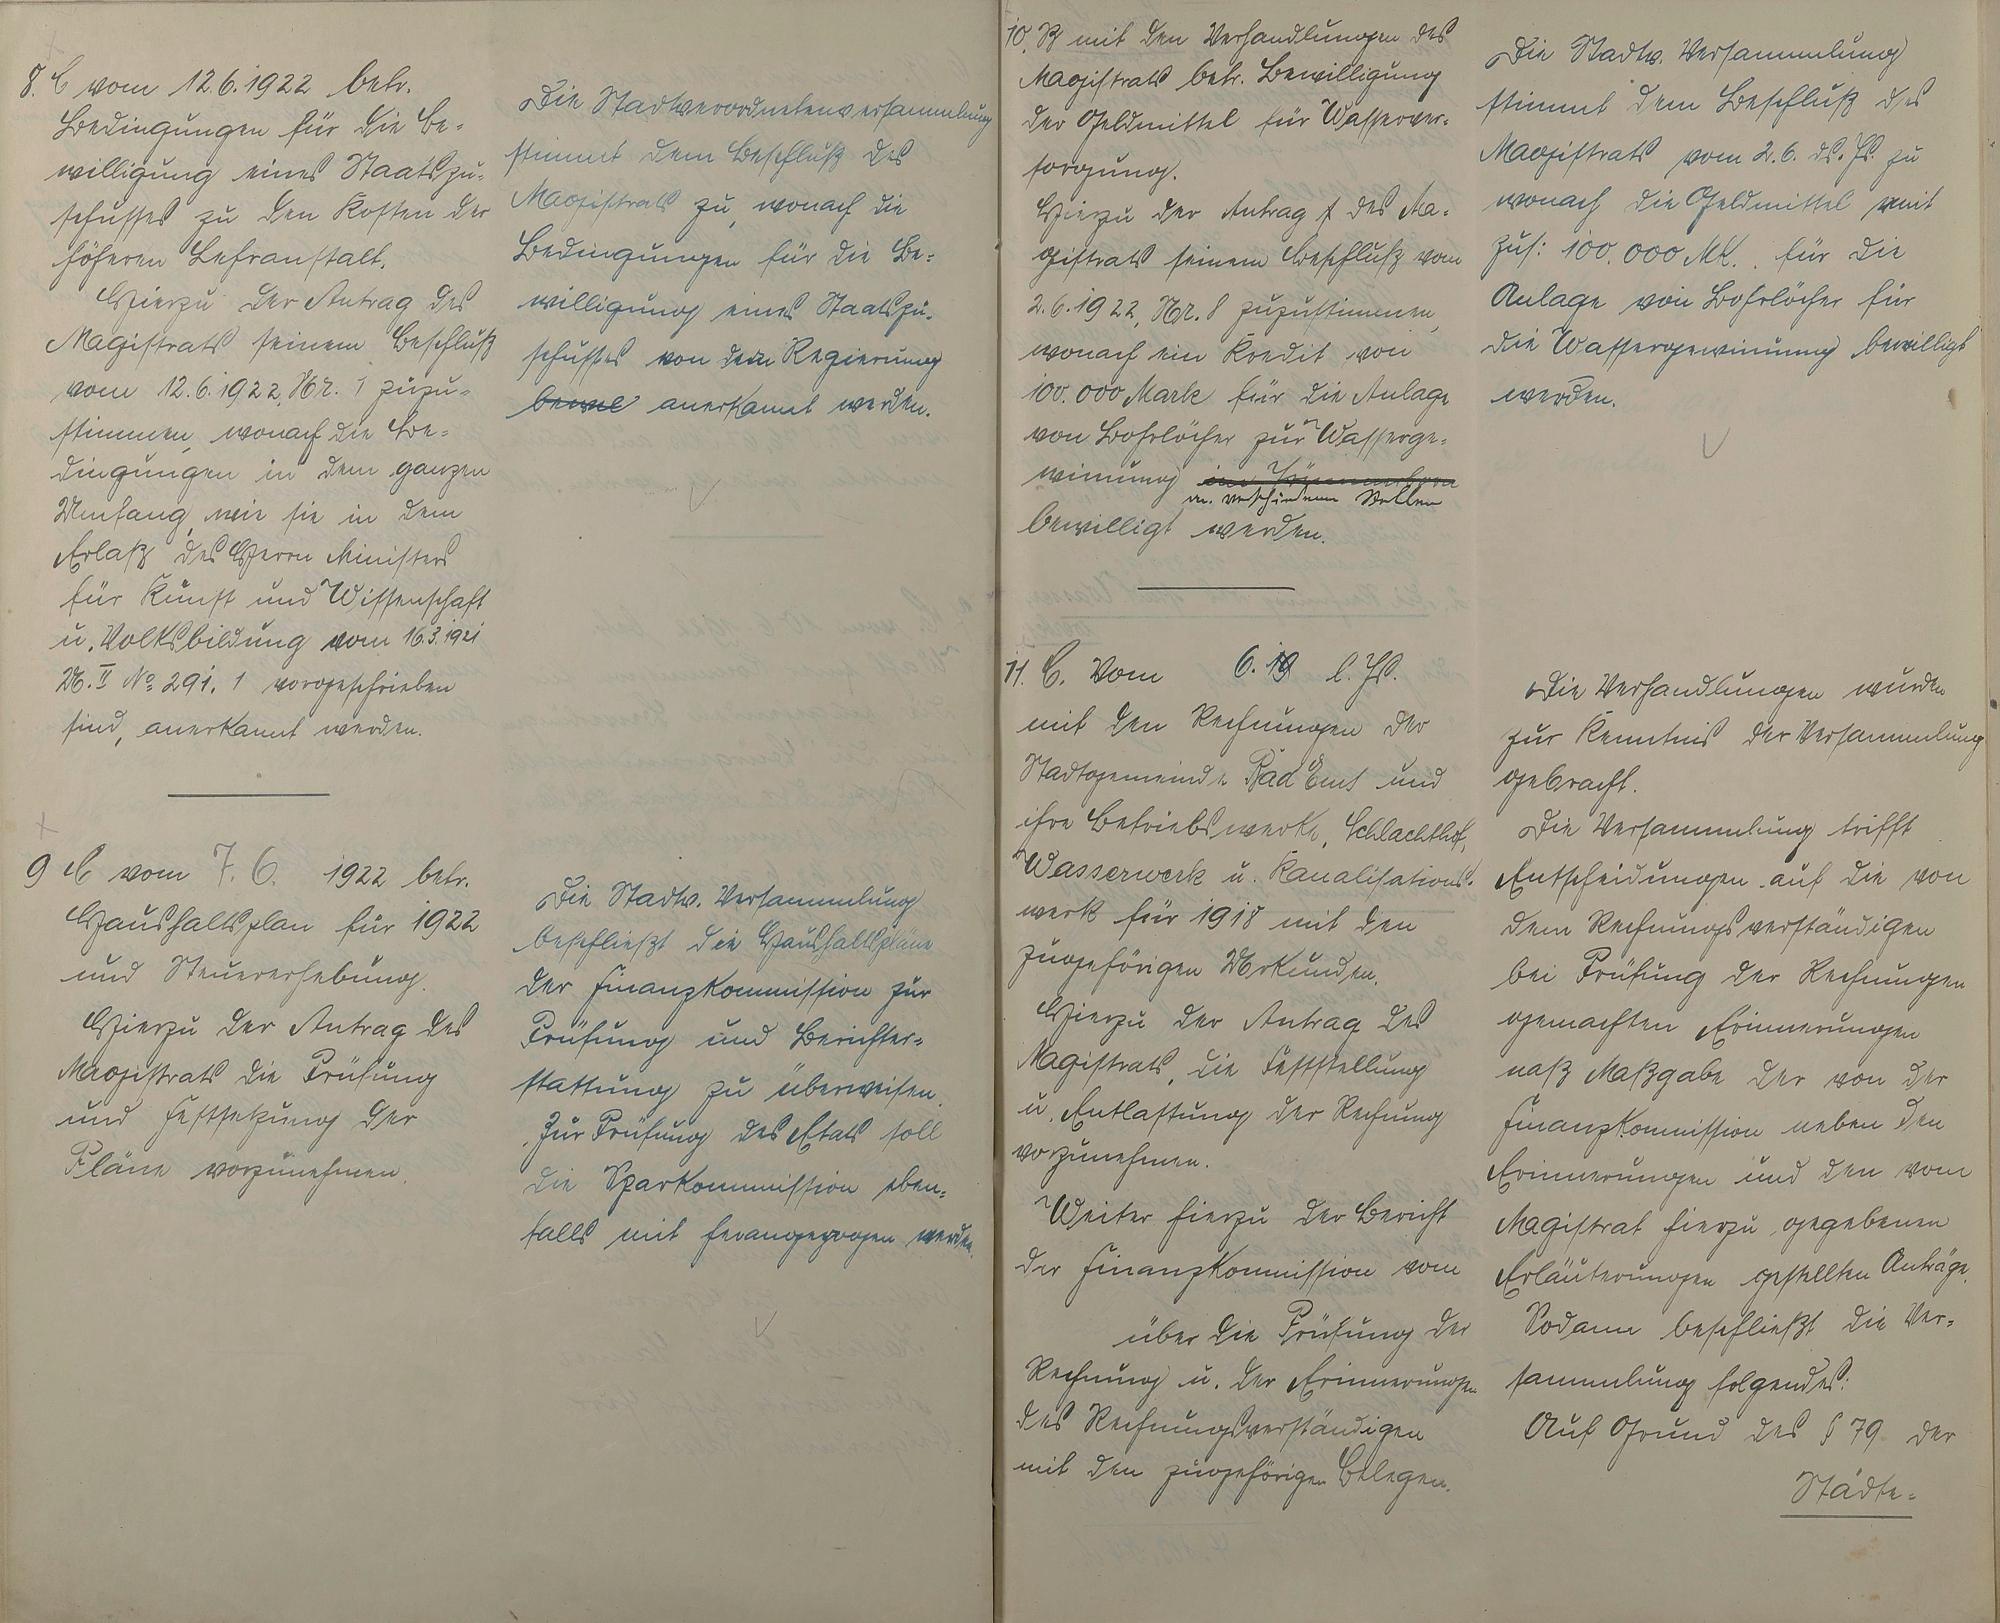 8. C vom 12.6.1922 betr.
Bedingungen für die Be-
willigung eines Staatszu-
schusses zu den Kosten der
höheren Lehranstalt.
Hierzu der Antrag des
Magistrats seinem Beschluß
vom 12.6.1922, Nr. 1 zuzu-
stimmen, wonach die Be-
dingungen in dem ganzen
Umfang, wie sie in dem
Erlaß des Herrn Ministers
für Kunst und Wissenschaft
u. Volksbildung vom 16.3.1921
U. II No 291. 1 vorgeschrieben
sind, anerkannt werden.
Die Stadtverordnetenversammlung
stimmt dem Beschluß des
Magistrats zu, wonach die
Bedingungen für die Be-
willigung eines Staatszu-
schusses von dem Regierung
bewil anerkannt werden.
9 C vom 7. 6. 1922 betr.
Haushaltsplan für 1922
und Steuererhebung.
Hierzu der Antrag des
Magistrats die Prüfung
und Festsetzung der
Pläne vorzunehmen.
Die Stadtv. Versammlung
beschließt die Haushaltspläne
der Finanzkommission zur
Prüfung und Berichter-
stattung zu überweisen.
Zur Prüfung des Etats soll
die Sparkommission eben-
falls mit herangezogen werden.
10. B mit den Verhandlungen des
Magistrats betr. Bewilligung
der Geldmittel für Wasserver-
sorgung.
Hierzu der Antrag des Ma-
gistrats seinem Beschluß vom
2.6.1922, Nr. 8 zuzustimmen,
wonach ein Kredit von
100.000 Mark für die Anlage
von Bohrlöcher zur Wasserge-
winnung
an verschiedenen Stellen
bewilligt werden.
Die Stadtv. Versammlung
stimmt dem Beschluß des
Magistrats vom 2.6. ds. Js. zu
wonach die Geldmittel mit
zus: 100.000 Mk. für die
Anlage von Bohrlöcher für
die Wassergewinnung bewilligt
werden.
11. C. Vom 6. 19 l. Js.
mit den Rechnungen der
Stadtgemeinde Bad Ems und
ihre Betriebswerke, Schlachthof,
Wasserwerk u. Kanalisations-
werk für 1918 mit den
zugehörigen Urkunden.
Hierzu der Antrag des
Magistrats, die Feststellung
u. Entlastung der Rechnung
vorzunehmen.
Weiter hierzu der Bericht
der Finanzkommission vom
über die Prüfung der
Rechnung u. der Erinnerungen
des Rechnungsverständigen
mit den zugehörigen Belegen.
Die Verhandlungen wurden
zur Kenntnis der Versammlung
gebracht.
Die Versammlung trifft
Entscheidungen auf die von
dem Rechnungsverständigen
bei Prüfung der Rechnungen
gemachten Erinnerungen
nach Maßgabe der von der
Finanzkommission neben den
Erinnerungen und den vom
Magistrat hierzu gegebenen
Erläuterungen gestellten Anträge.
Sodann beschließt die Ver-
sammlung folgendes:
Auf Grund des § 79 der
Städte-